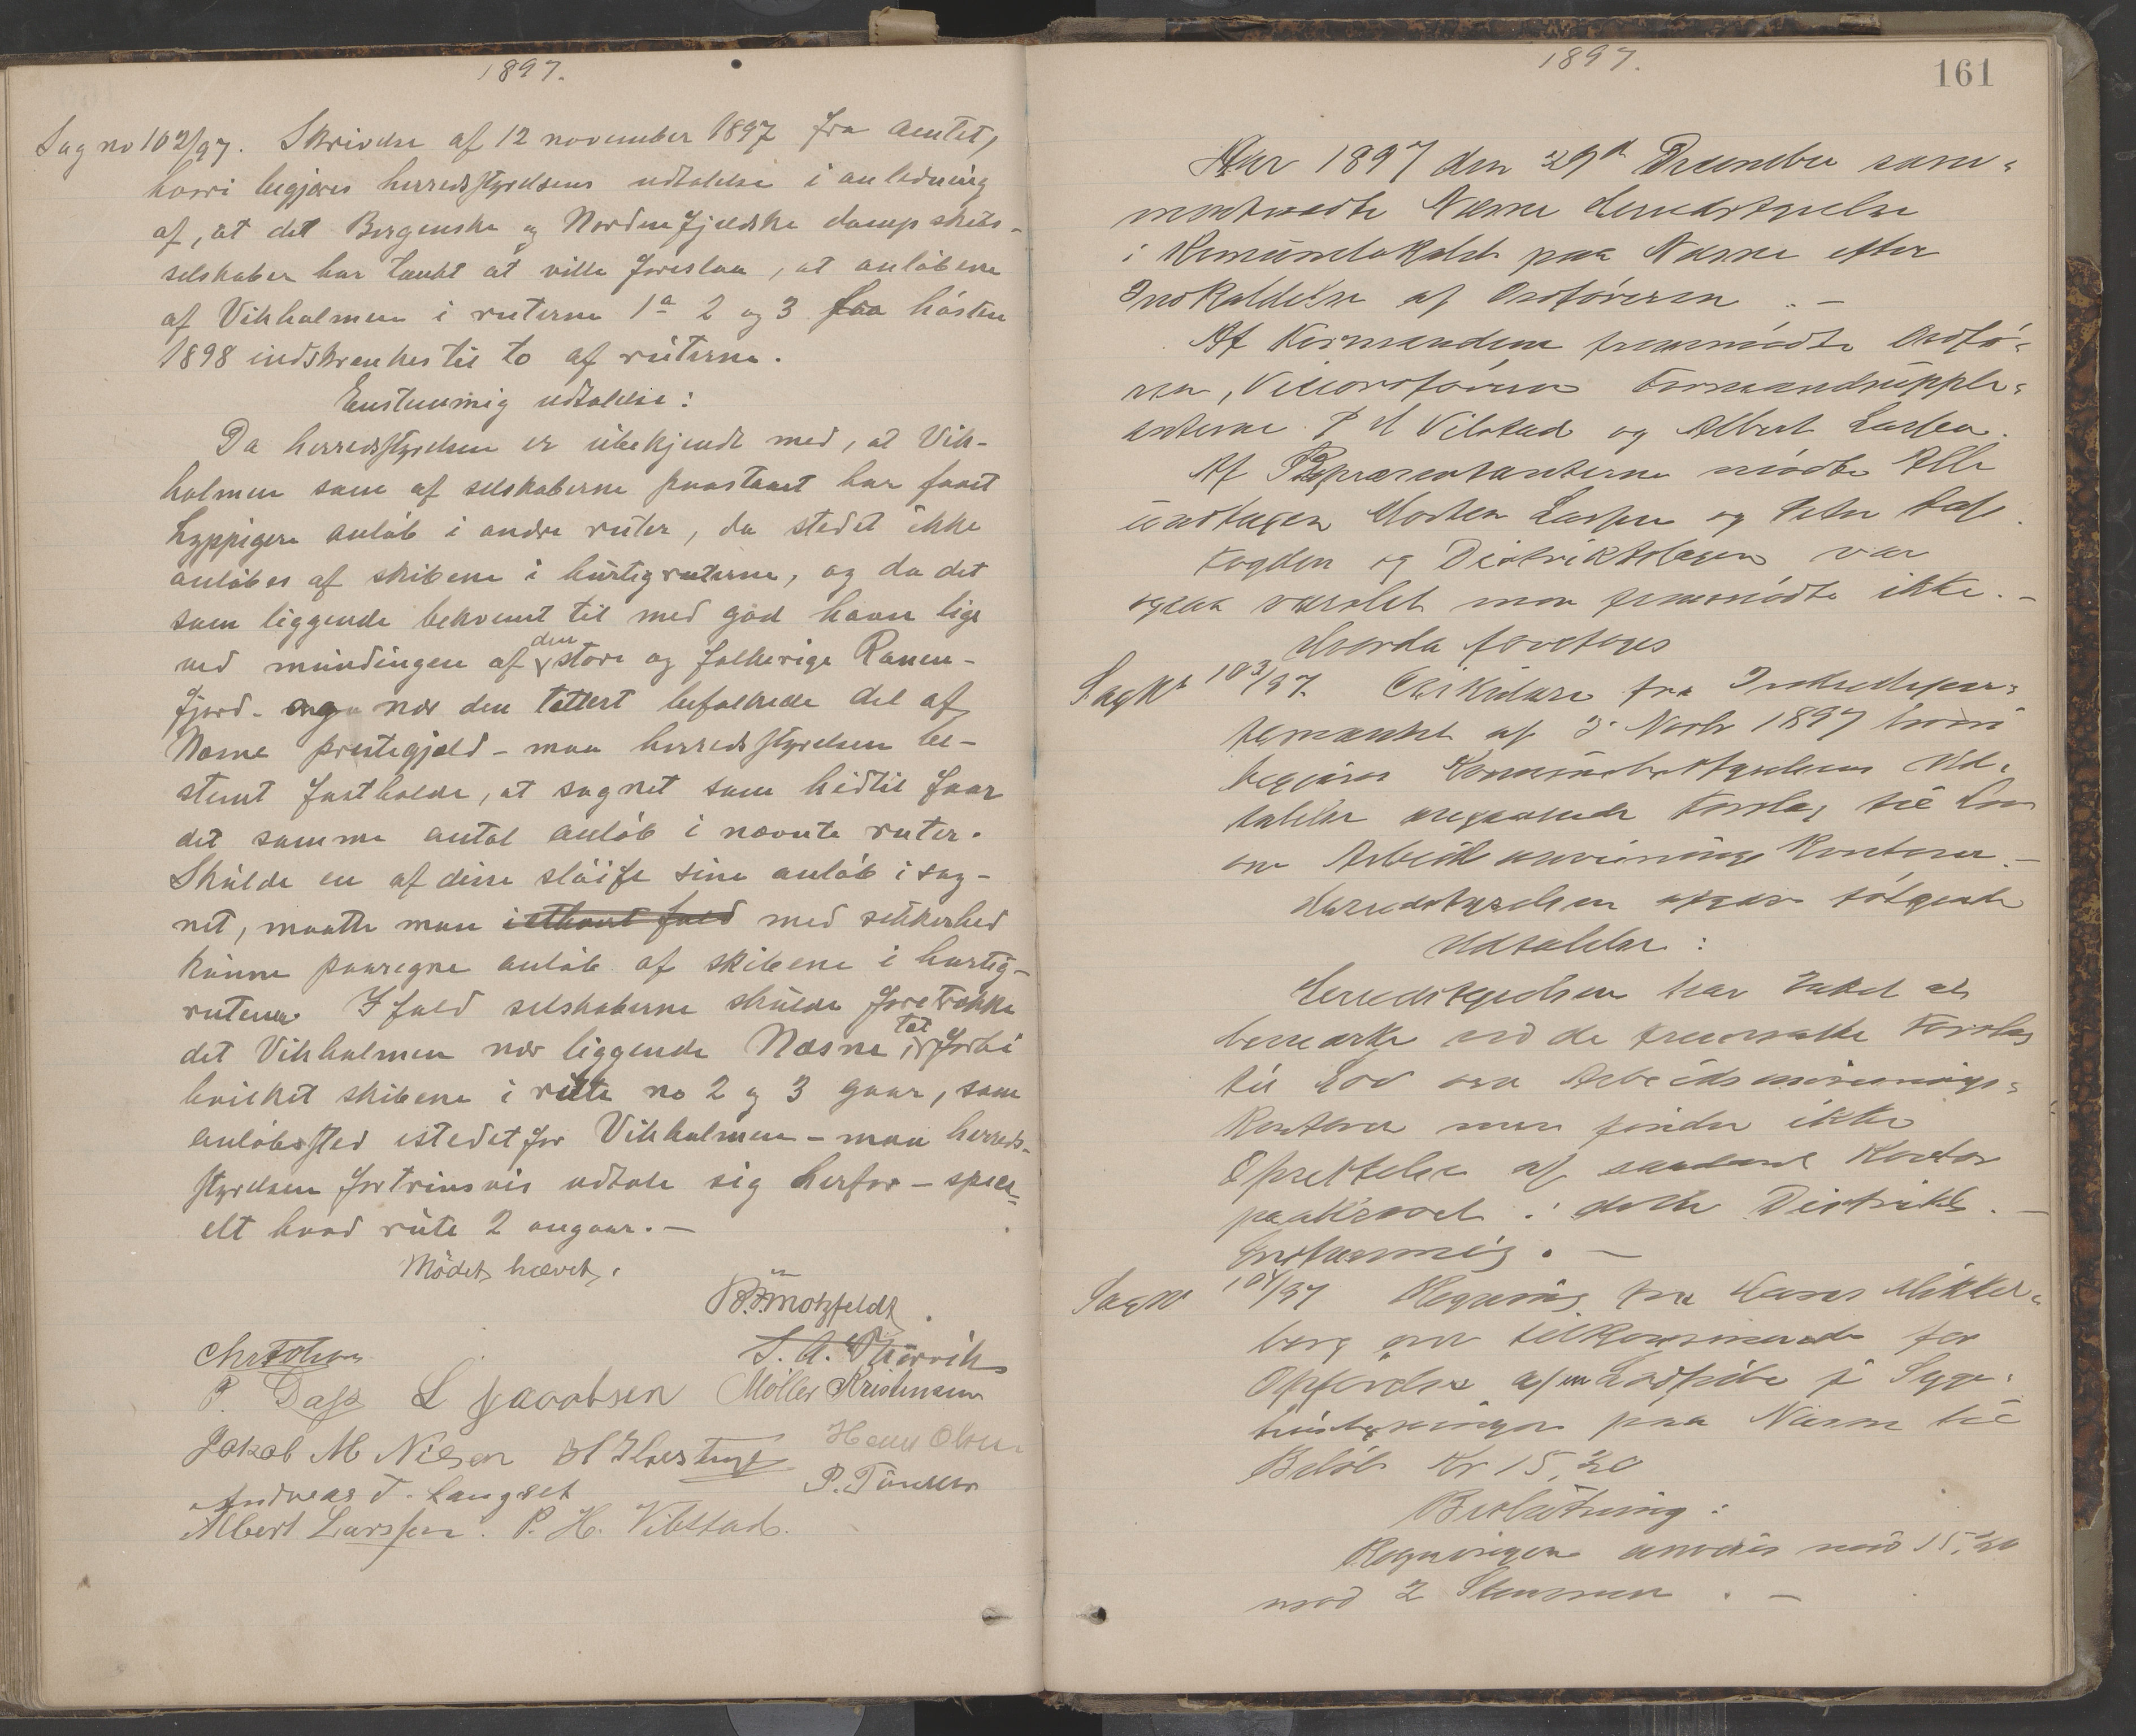 1897.
Sag no 102/97. Skrivelse af 12 november 1897 fra amtet,
hvori begjæres herredsstyrelsens udtalelse i anledning
af, at det Bergenske og Nordenfjeldske dampskibs-
selskaber har tænkt at ville foreslaa, at anløbene
af Vikholmen i ruterne 1a 2 og 3 fra høsten
1898 indskrænkes til to af ruterne.
Enstemmig udtalelse:
Da herredsstyrelsen er ubekjendt med, at Vik-
holmen som af selskaberne paastaaet har faaet
hyppigere anløb i andre ruter, da stedet ikke
anløbes af skibene i hurtigruterne, og da det
som liggende bekvemt til med god havn lige
ved mundingen af den store og folkerige Ranen-
fjord - og nær den tættest befolkede del af
Næsne prestegjæld - maa herredsstyrelsen be-
stemt fastholde, at sognet som hidtil faar
det samme antal anløb i nævnte ruter.
Skulde en af disse sløife sine anløb i sog-
net, maatte man iethvert fald med sikkerhed
kunne paaregne anløb af skibene i hurtig-
ruterne. Ifald selskaberne skulde foretrække
det Vikholmen nær liggende Næsne, tæt forbi
hvilket skibene i rute no 2 og 3 gaar, som
anløbssted istedetfor Vikholmen - maa herreds-
styrelsen fortrinsvis udtale sig herfor - speci-
elt hvad rute 2 angaar. -
Mødet hævet.
B. F. Motzfeldt
P. Dass L Jacobsen Møller Kristensen
Jakob M Nilsen Hans Olsen
Andreas T. Langset P. Tønder
Albert Larssen. P. H. Vibstad.
1897.
161
Aar 1897 den 29de December sam-
mentraadte Næsne Herredsstyrelse
i Kommunelokalet paa Næsne efter
Indkaldelse af Ordføreren. -
Af Formændene fremmødte Ordfø-
ren, Viceordføreren Formandsupple-
anterne P H Vibstad og Albert Larssen.
Af Repræsentanterne mødte Alle
undtagen Morten Larssen og Peter Dass.
Fogden og Distriktslægen var
ogsaa varslet men fremmødte ikke. -
Hvorda foretoges
Sag No 103/97. Cirkulære fra Indredepar-
tementet af 3 Novbr 1897 hvori
begjæres Kommunebestyrelsens Ud-
talelse angaaende Forslag til Lov
om Arbeidsanvisnings Kontorer. -
Herredsstyrelsen afgav følgende
Udtalelse:
Herredsstyrelsen har Intet at
bemærke ved de fremsatte Forslag
til Lov om Arbeidsanvisnings-
Kontorer men finder ikke
Oprettelse af saadant Kontor
paakrævet i dette Distrikt. -
Enstemmig. -
Sag No 104/97 Regning fra Hans Mikkel-
berg om tilkommende for
Opførelse af en Ladpibe i Syge-
bygningen paa Næsne til
Beløb Kr 15,20
Beslutning:
Regningen anvises med 15,20
mod 2 Stemmer. -